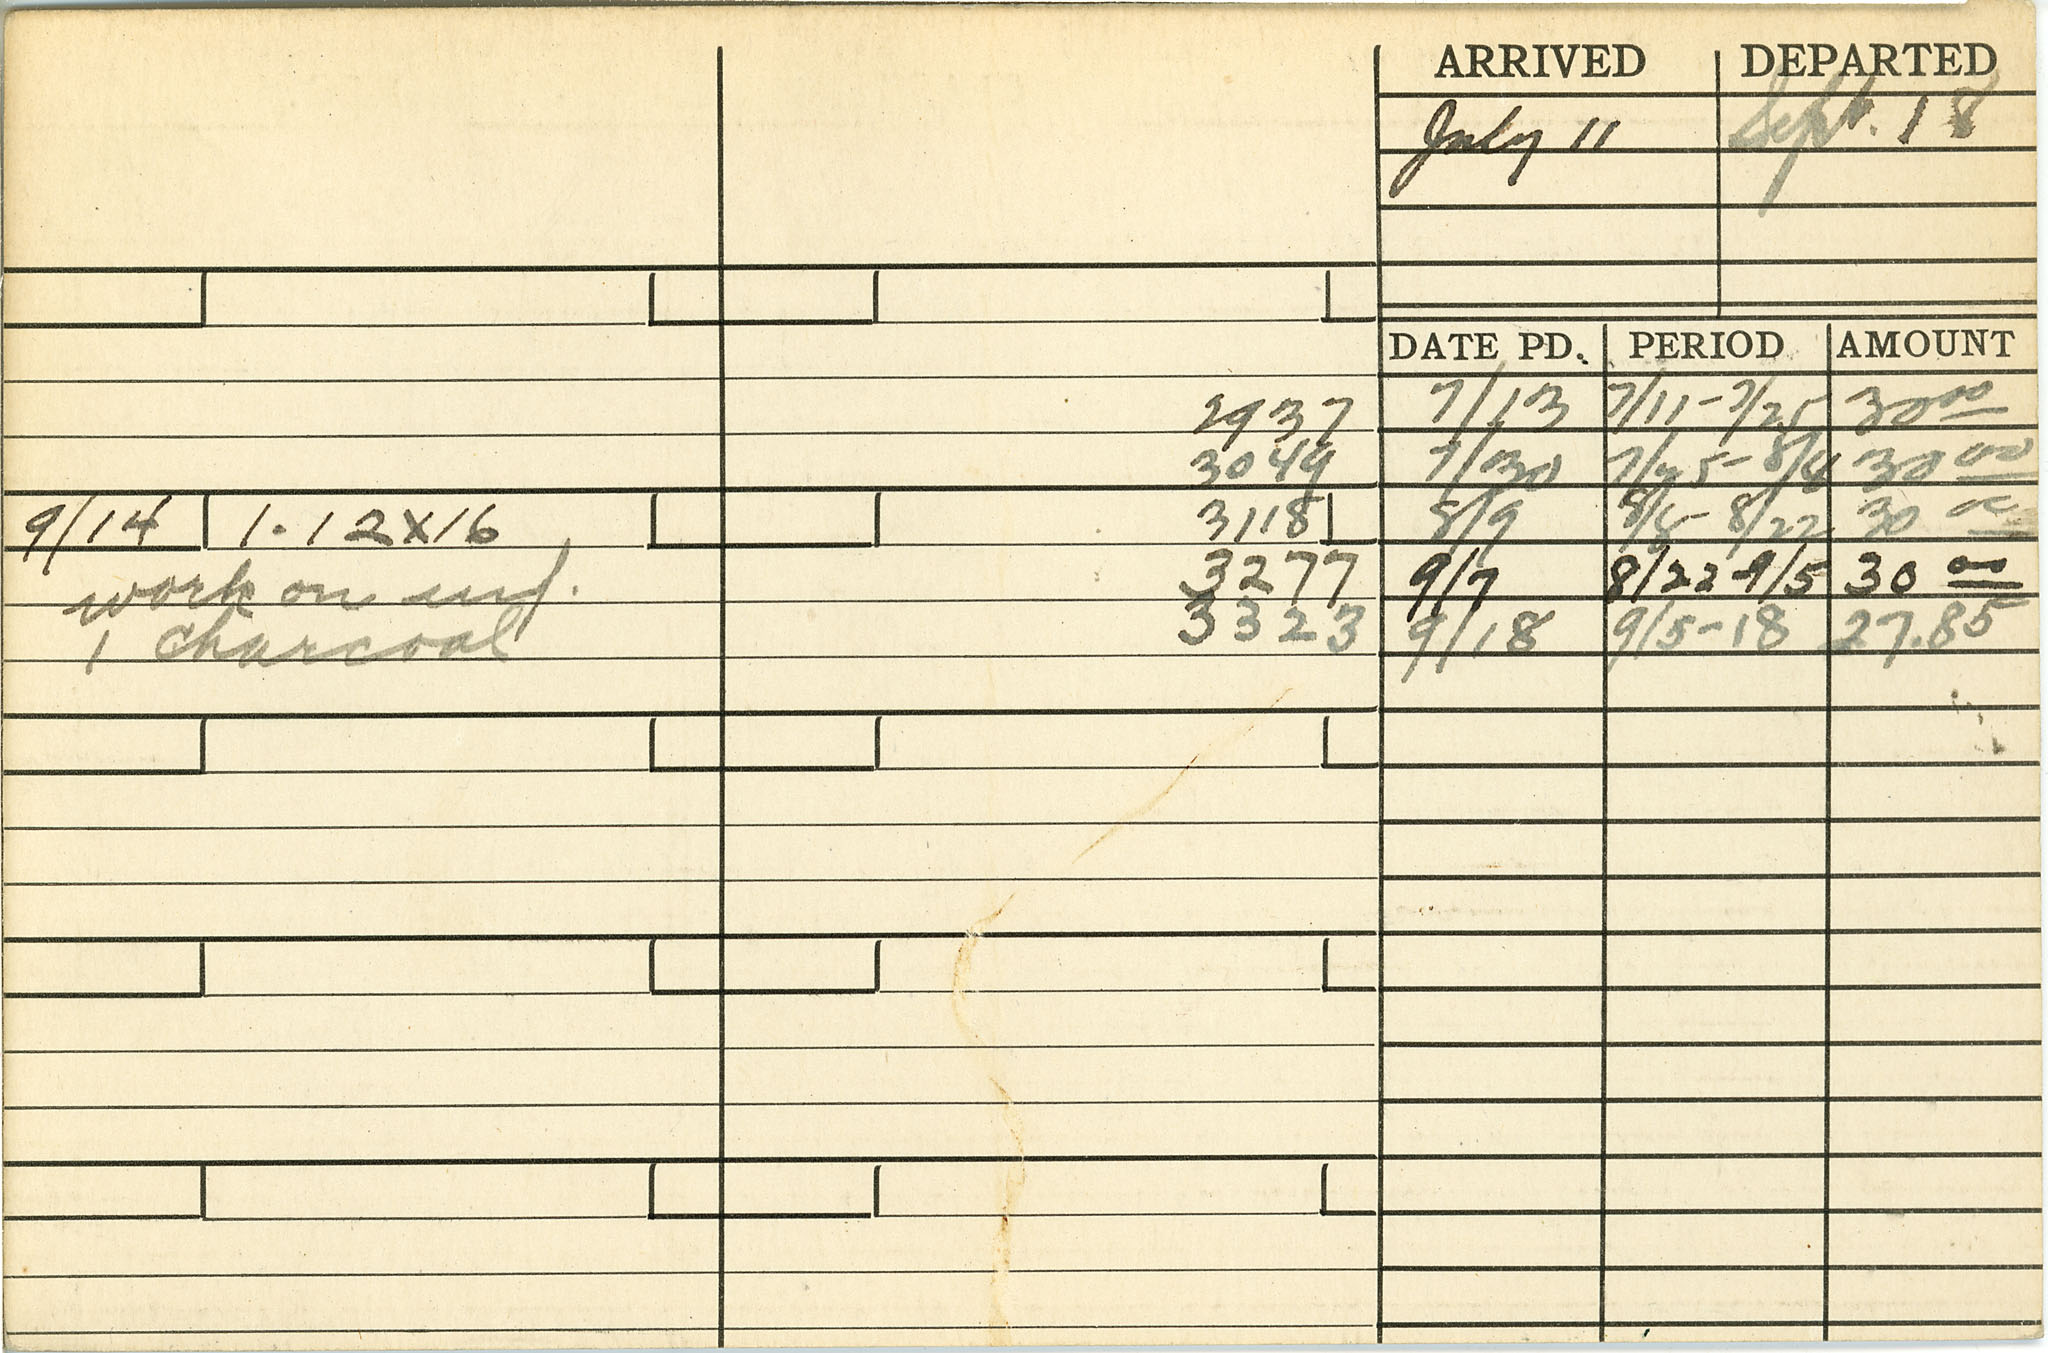 ARRIVED DEPARTED
July 11 Sept. 18
DATE PD. PERIOD AMOUNT
2937 7/13 7/11-7/25 30 00
3049 7/30 7/25-8/4 30 00
9/14 1-12x16 3118 8/9 8/8-8/22 30 00
work on 3277 9/7 8/22-9/5 30 00
1 charcoal 3323 9/18 9/5-18 27.85